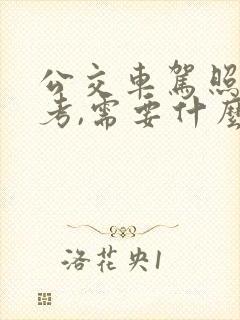 公交車駕照
考,需要什麼
洛花央1